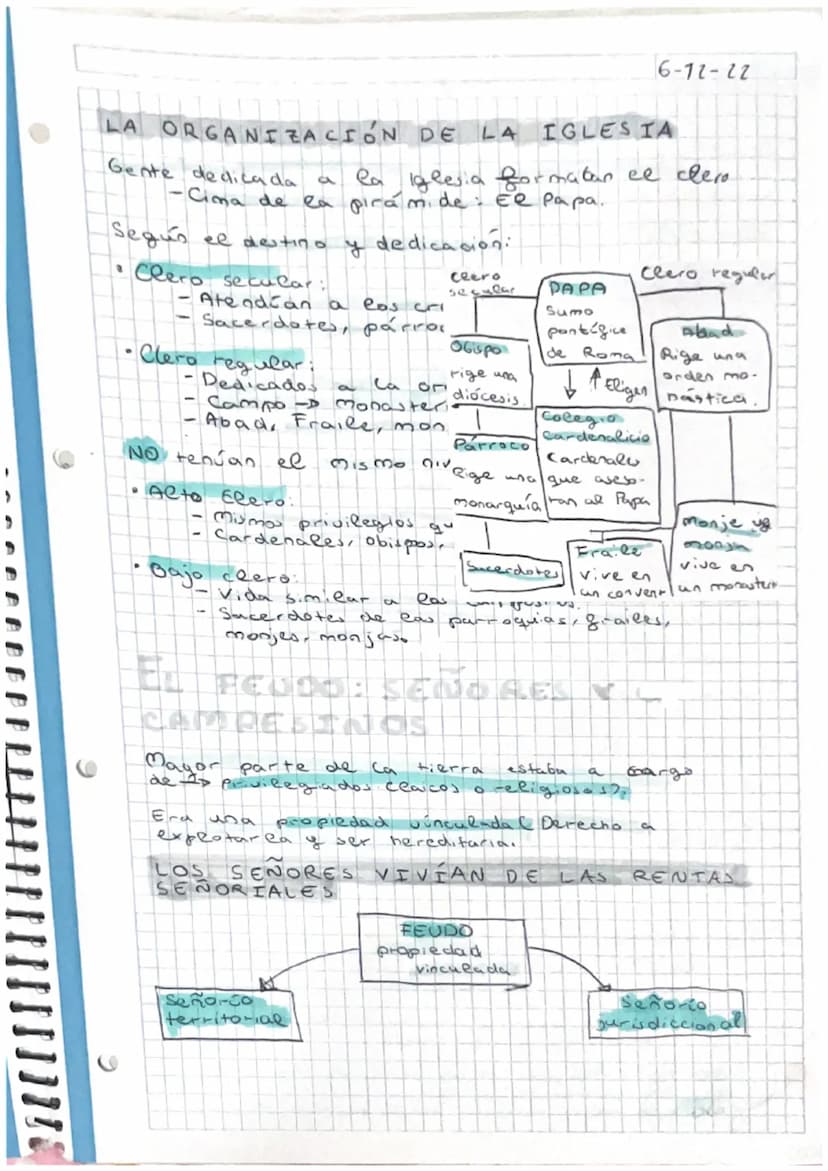 6-12-22
LA ORGANIZACIÓN DE LA IGLESIA
Gente dedicada a la iglesia formaban el clero
- Cima de la pirámide: El Papa.
Según el destino y dedicación:
• Clero secular:
- Atendían a los cri
- Sacerdotes, párroc
• Clero regular:
- Dedicados a la ora
- Campo → monasteri
- Abad, Fraile, mon
NO tenían el mismo niv
• Alto Clero:
- Mismos privilegios qu
- Cardenales, obispos,
• Bajo clero:
- Vida similar a los
- Sacerdotes de las parroquias, frailes,
monjes, monjas.
Clero
secular
Clero regular
PAPA
Sumo
pontífice
de Roma
Obispo
rige una
diócesis.
Abad
Rige una
orden mo-
nástica.
Eligen
Colegio
Cardenalicio
Cardenales
que aseso-
ran al Papa
Párroco
Rige una
monarquía
Sacerdotes
Fraile
vive en
un convent
Monje y
monja
vive en
un monaster
EL FEUDO: SEÑORES Y
CAMPESINOS
Mayor parte de la tierra estaba a cargo
de → privilegiados (laicos o religiosos).
Era una propiedad vinculada ( Derecho a
explotarla y ser hereditaria.
LOS SEÑORES VIVÍAN DE LAS RENTAS
SEÑORIALES
FEUDO
propiedad
vinculada
Señorío
territorial
Señorío
jurisdiccional